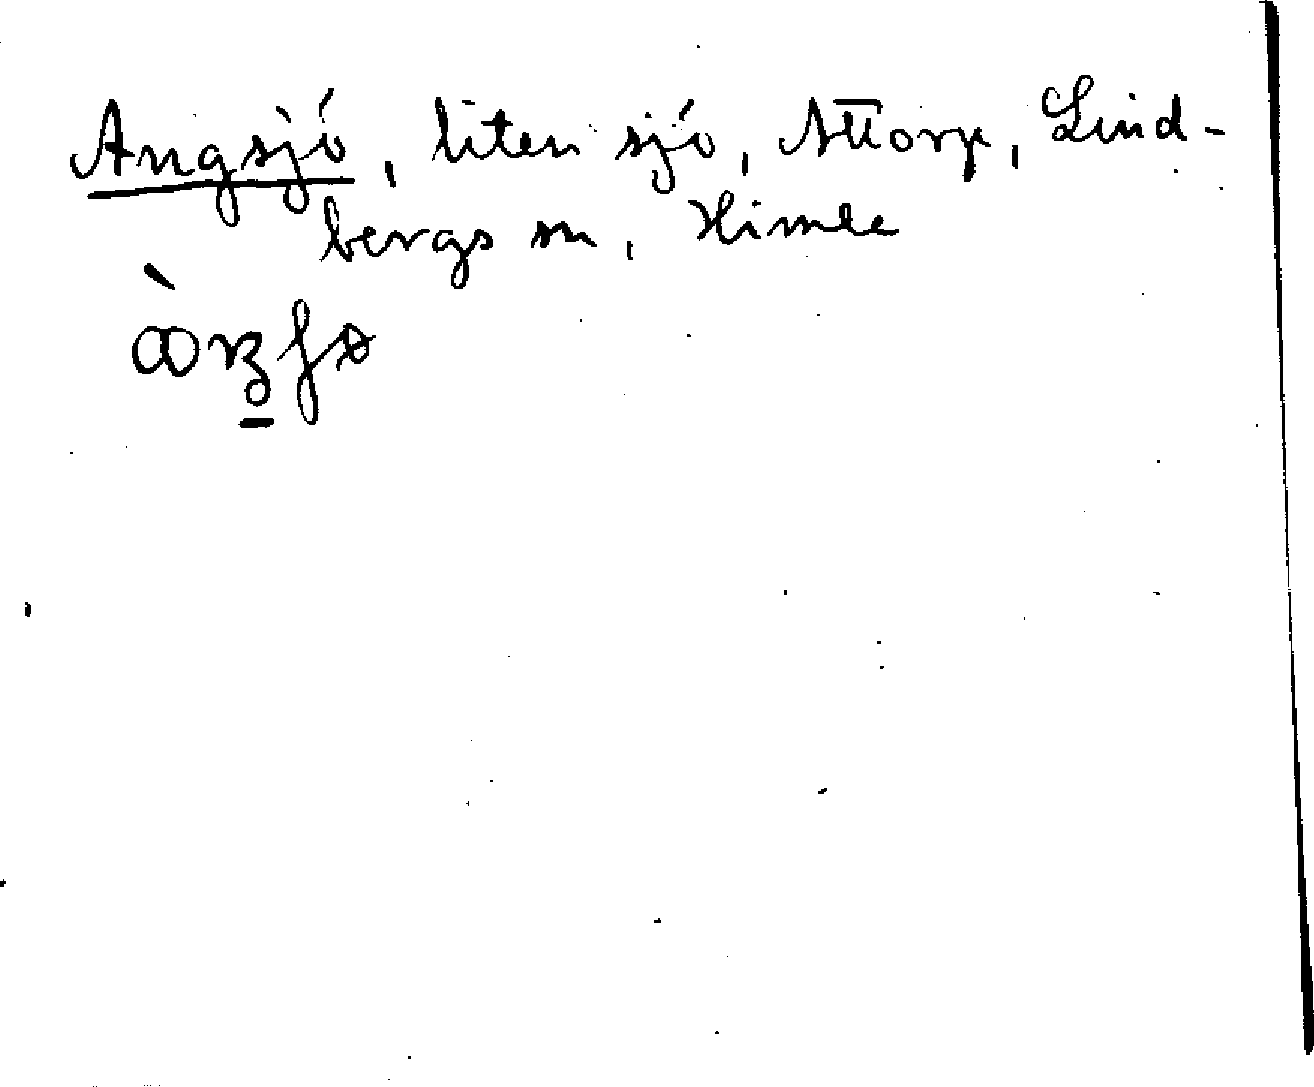 Angsjö, liten sjö, Attorp, Lind-
bergs sn, Himle